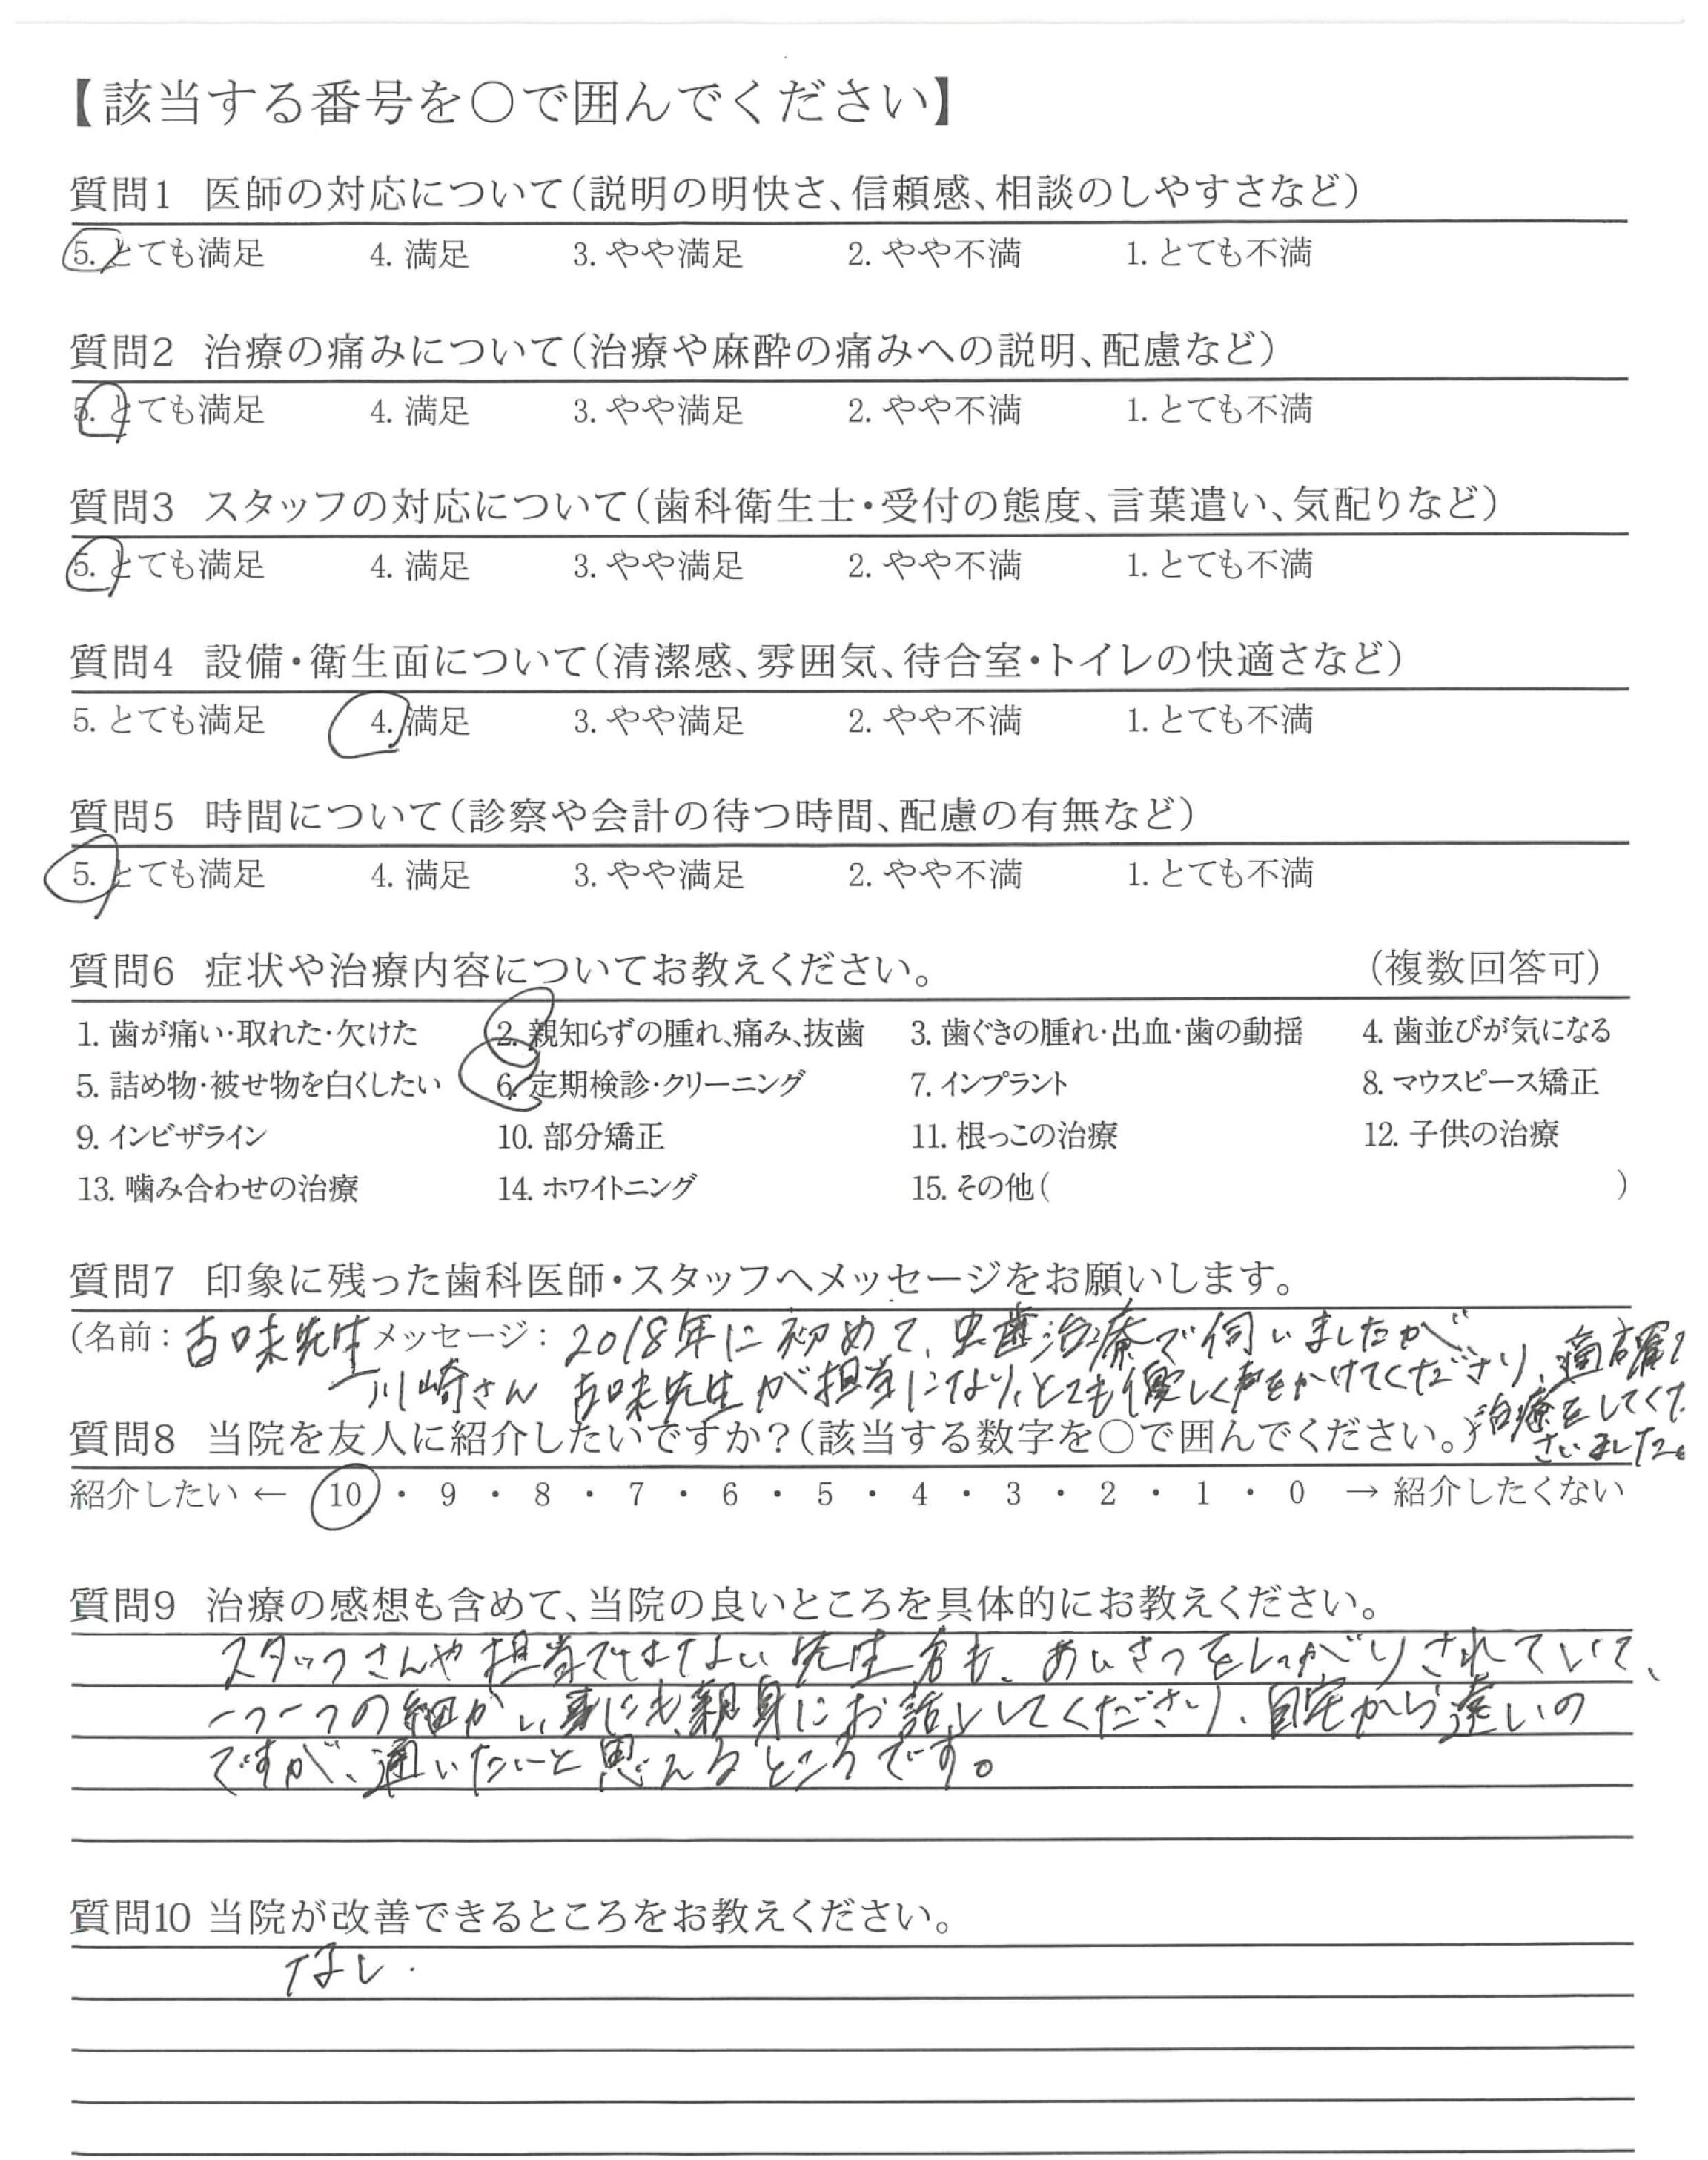 【該当する番号を〇で囲んでください】
質問1 医師の対応について(説明の明快さ、信頼感、相談のしやすさなど)
5. とても満足 4. 満足 3. やや満足 2. やや不満 1. とても不満
質問2 治療の痛みについて(治療や麻酔の痛みへの説明、配慮など)
5. とても満足 4. 満足 3. やや満足 2. やや不満 1. とても不満
質問3 スタッフの対応について(歯科衛生士・受付の態度、言葉遣い、気配りなど)
5. とても満足 4. 満足 3. やや満足 2. やや不満 1. とても不満
質問4 設備・衛生面について(清潔感、雰囲気、待合室・トイレの快適さなど)
5. とても満足 4. 満足 3. やや満足 2. やや不満 1. とても不満
質問5 時間について(診察や会計の待つ時間、配慮の有無など)
5. とても満足 4. 満足 3. やや満足 2. やや不満 1. とても不満
質問6 症状や治療内容についてお教えください。 (複数回答可)
1. 歯が痛い・取れた・欠けた 2. 親知らずの腫れ、痛み、抜歯 3. 歯ぐきの腫れ・出血・歯の動揺 4. 歯並びが気になる
5. 詰め物・被せ物を白くしたい 6. 定期検診・クリーニング 7. インプラント 8. マウスピース矯正
9. インビザライン 10. 部分矯正 11. 根っこの治療 12. 子供の治療
13. 噛み合わせの治療 14. ホワイトニング 15. その他( )
質問7 印象に残った歯科医師・スタッフへメッセージをお願いします。
(名前: 古味先生 メッセージ: 2018年に初めて、虫歯治療で伺いましたが
川崎さん 古味先生が担当になり、とても優しく声をかけてくださり、適確に
治療をしてくだ
さいました。)
質問8 当院を友人に紹介したいですか?(該当する数字を〇で囲んでください。)
紹介したい ← 10 ・ 9 ・ 8 ・ 7 ・ 6 ・ 5 ・ 4 ・ 3 ・ 2 ・ 1 ・ 0 → 紹介したくない
質問9 治療の感想も含めて、当院の良いところを具体的にお教えください。
スタッフさんや担当ではない先生方も、あいさつをしっかりされていて、
一つ一つの細かい事にも親身にお話ししてくださり、自宅から遠いの
ですが、通いたいと思えるところです。
質問10 当院が改善できるところをお教えください。
なし.